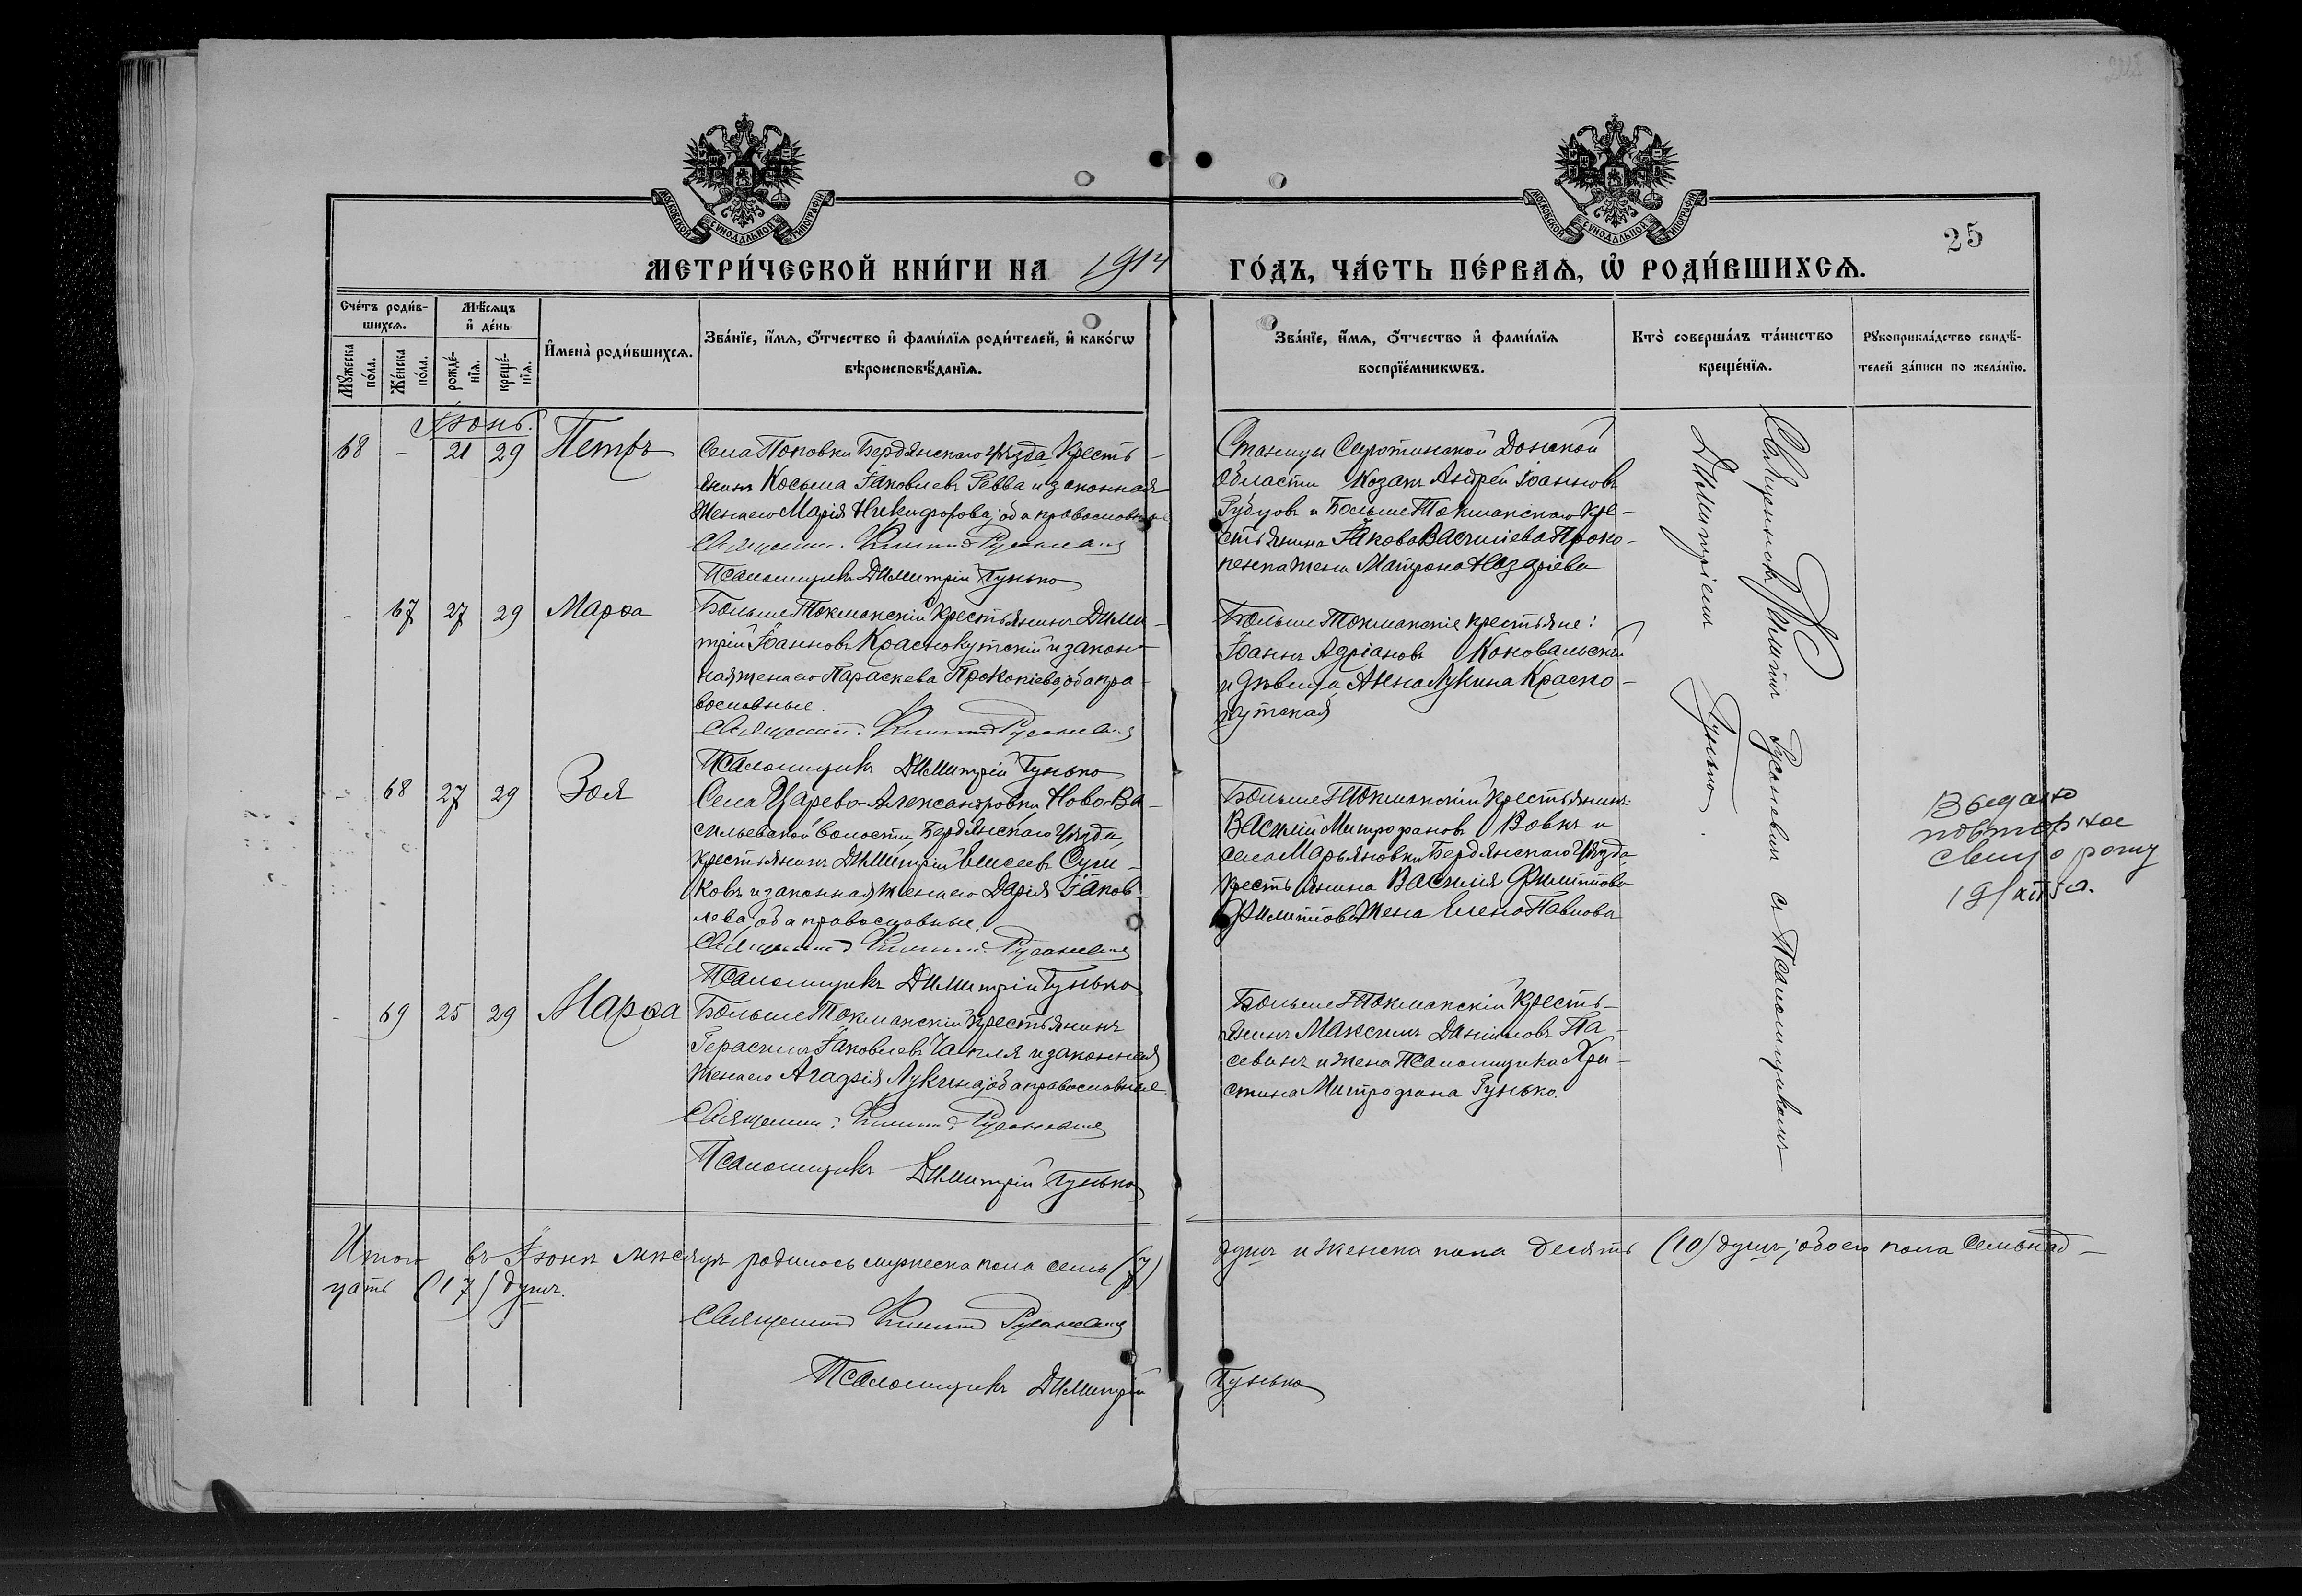 МОСКОВСКОЙ СѴНОДАЛЬНОЙ ТИПОГРАФІИ
МОСКОВСКОЙ СѴНОДАЛЬНОЙ ТИПОГРАФІИ
25
МЕТРИ́ЧЕСКОЙ КНИ́ГИ НА 1914 ГО́ДЪ, ЧА́СТЬ ПЕ́РВАѦ, Ѡ҆ РОДИ́ВШИХСѦ.
Сче́тъ роди́в-
шихсѧ.
Мꙋ́жеска
по́ла.
Же́нска
по́ла.
Мѣ́сѧцъ
и҆ де́нь
рожде́-
нїѧ.
креще́-
нїѧ.
И҆мена̀ роди́вшихсѧ.
Зва́нїе, и҆́мѧ, ѻ҆́тчество и҆ фами́лїѧ роди́телей, и҆ како́гѡ
вѣроисповѣ́данїѧ.
Зва́нїе, и҆́мѧ, ѻ҆́тчество и҆ фами́лїѧ
воспрїе́мникѡвъ.
Кто̀ соверша́лъ та́инство
креще́нїѧ.
Рꙋкоприкла́дство свидѣ́-
телей за́писи по жела́нїю.
Іюнь.
68 - 21 29 Петръ
Села Поповки Бердянскаго уѣзда, кресть-
янинъ Косьма Іаковлевъ Ревва и законная
жена его Марія Никифорова, оба православные
Священник
Псаломщикъ Димитрій Гунько
Станицы Сиротинской Донской
Области козакъ Андрей Іоанновъ
Рубцовъ и Больше Токмакскаго кре-
стьянина Іакова Васильева Проко-
пенка жена Матрона Назаріева
- 67 27 29 Марѳа
Больше Токмакскій крестьянинъ Дими-
трій Іоанновъ Краснокутскій и закон-
ная жена его Параскева Прокопіева, оба пра-
вославные.
Священник
Псаломщикъ Димитрій Гунько
Больше Токмакскіе крестьяне:
Іоаннъ Адріановъ Коновальскій
и дѣвица Анна Лукина Красно-
кутская
- 68 27 29 Зоя
Села Царево-Александровки, Ново-Ва-
сильевской волости, Бердянскаго уѣзда,
крестьянинъ Димитрій Елисеевъ Сули-
ковъ и законная жена его Дарія Іаков-
лева, оба православные.
Священник
Псаломщикъ Димитрій Гунько
Больше Токмакскій крестьянинъ
Василій Митрофановъ Вовкъ и
села Марьяновки Бердянскаго уѣзда
крестьянина Василія Филиппова
Филиппова жена Елена Павлова
Выдано
повторное
свид о рожд
- 69 25 29 Марѳа
Больше Токмакскій крестьянинъ
Герасимъ Іаковлевъ Чапля и законная
жена его Агаѳія Лукина, оба православные
Священник
Псаломщикъ Димитрій Гунько
Больше Токмакскій кресть-
янинъ Максимъ Даніиловъ Па-
севинъ и жена Псаломщика Хри-
стина Митрофана Гунько.
Священникъ Климентъ Русаневичъ съ Псаломщикомъ
Димитріемъ Гунько.
Итого въ Іюнѣ мѣсяцѣ родилось мужеска пола семь (7) душъ и женска пола десять (10) душъ; обоего пола семнад-
цать (17) душъ.
Священник
Псаломщикъ Димитрій Гунько